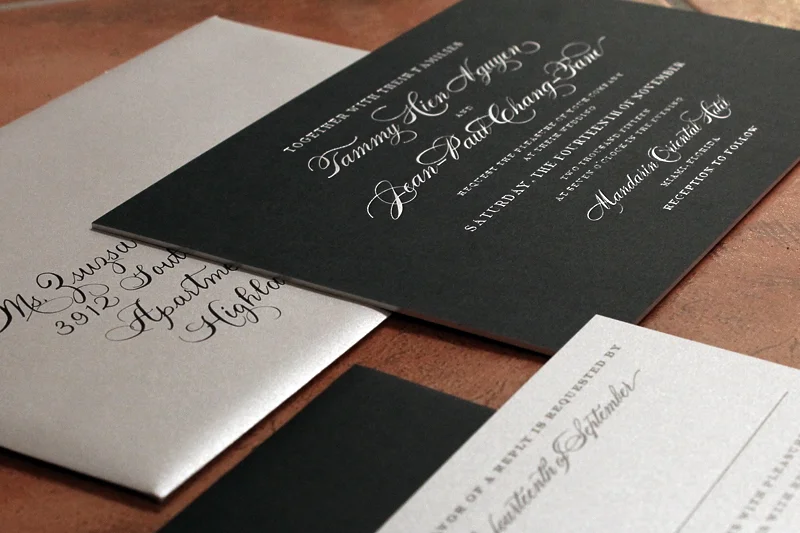 TOGETHER WITH THEIR FAMILIES
Tammy Hien Nguyen
AND
Jean-Paul Chang-Fane
REQUEST THE PLEASURE OF YOUR COMPANY
AT THEIR WEDDING
SATURDAY, THE FOURTEENTH OF NOVEMBER
TWO THOUSAND FIFTEEN
AT SEVEN O'CLOCK IN THE EVENING
Mandarin Oriental Hotel
MIAMI, FLORIDA
RECEPTION TO FOLLOW
Ms. Zsuzsa
3912 Sout
Apartme
Highla
VOR OF A REPLY IS REQUESTED BY
ourteenth of September
S WITH PLEASUR
S WITH RE